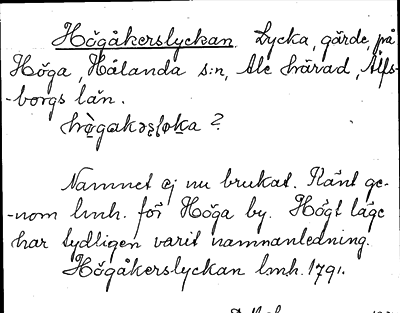 Högåkerslyckan. Lycka, gärde, på
Höga, Hålanda s:n, Ale härad, Älfs-
-borgs län.
?
Namnet ej nu brukat. Känt ge-
-nom lmh. för Höga by. Högt läge
har tydligen varit namnanledning.
Högåkerslyckan lmh. 1791.